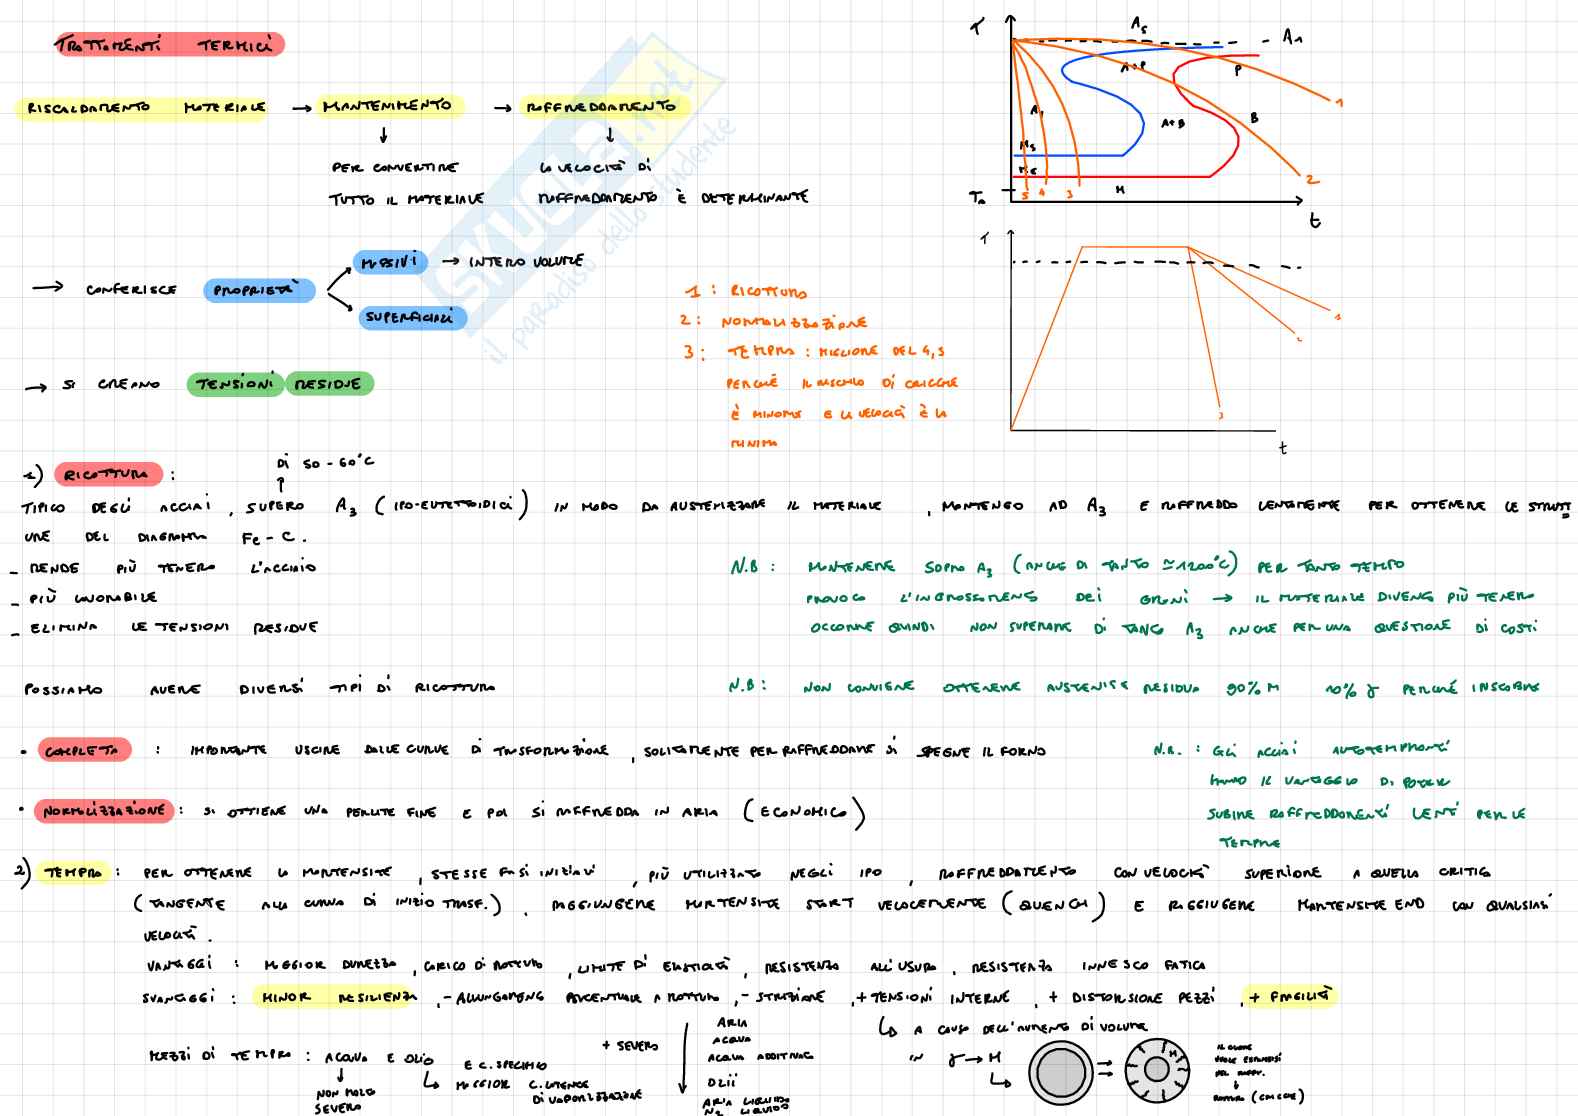 TRATTAMENTI TERMICI
RISCALDAMENTO MATERIALE → MANTENIMENTO → RAFFREDDAMENTO
PER CONVERTIRE
TUTTO IL MATERIALE
LA VELOCITÀ DI
RAFFREDDAMENTO È DETERMINANTE
→ CONFERISCE PROPRIETÀ
MASSIVI → INTERO VOLUME
SUPERFICIALI
→ SI CREANO TENSIONI RESIDUE
SKUOLA.net
il paradiso dello studente
T
A5
A1
A+P
P
1
A+B
B
Ms
M
2
5 4 3
t
T
1
2
3
t
1 : RICOTTURA
2 : NORMALIZZAZIONE
3 : TEMPRA : MIGLIORE DEL 4,5
PERCHÉ IL RISCHIO DI CRICCHE
È MINORE E LA VELOCITÀ È LA
MINIMA
1) RICOTTURA :
DI 50-60°C
TIPICO DEGLI ACCIAI, SUPERO A3 (IPO-EUTETTOIDICI) IN MODO DA AUSTENIZZARE IL MATERIALE, MANTENGO AD A3 E RAFFREDDO LENTAMENTE PER OTTENERE LE STRUTT
URE DEL DIAGRAMMA Fe-C.
- RENDE PIÙ TENERO L'ACCIAIO
- PIÙ LAVORABILE
- ELIMINA LE TENSIONI RESIDUE
N.B : MANTENERE SOPRA A3 (ANCHE DI TANTO ≃1200°C) PER TANTO TEMPO
PROVOCA L'INGROSSAMENTO DEI GRANI → IL MATERIALE DIVENTA PIÙ TENERO
OCCORRE QUINDI NON SUPERARE DI TANTO A3 ANCHE PER UNA QUESTIONE DI COSTI
POSSIAMO AVERE DIVERSI TIPI DI RICOTTURA
N.B : NON CONVIENE OTTENERE AUSTENITE RESIDUA 90% M 10% γ PERCHÉ INSTABILE
• COMPLETA : IMPORTANTE USCIRE DALLE CURVE DI TRASFORMAZIONE, SOLITAMENTE PER RAFFREDDARE SI SPEGNE IL FORNO
N.B. : GLI ACCIAI AUTOTEMPRANTI
HANNO IL VANTAGGIO DI POTER
SUBIRE RAFFREDDAMENTI LENTI PER LE
TEMPRE
• NORMALIZZAZIONE : SI OTTIENE UNA PERLITE FINE E POI SI RAFFREDDA IN ARIA (ECONOMICO)
2) TEMPRA : PER OTTENERE LA MARTENSITE, STESSE FASI INIZIALI, PIÙ UTILIZZATO NEGLI IPO, RAFFREDDAMENTO CON VELOCITÀ SUPERIORE A QUELLA CRITICA
(TANGENTE ALLA CURVA DI INIZIO TRASF.). RAGGIUNGERE MARTENSITE START VELOCEMENTE (QUENCH) E RAGGIUGERE MARTENSITE END CON QUALSIASI
VELOCITÀ.
VANTAGGI : MAGGIOR DUREZZA, CARICO DI ROTTURA, LIMITE DI ELASTICITÀ, RESISTENZA ALL'USURA, RESISTENZA INNESCO FATICA
SVANTAGGI : MINOR RESILIENZA, - ALLUNGAMENTO PERCENTUALE A ROTTURA, - STRIZIONE, + TENSIONI INTERNE, + DISTORSIONE PEZZI, + FRAGILITÀ
A CAUSA DELL'AUMENTO DI VOLUME
IN γ → M
MEZZI DI TEMPRA : ACQUA E OLIO
NON MOLTO
SEVERO
E C. SPECIFICO
MAGGIOR C. LATENTE
DI VAPORIZZAZIONE
+ SEVERO
ARIA
ACQUA
ACQUA ADDITIVATA
OLII
ARIA LIQUIDA
N2 LIQUIDO
M
IL CUORE
VUOLE ESPANDERSI
ROTTURA (CRICCHE)